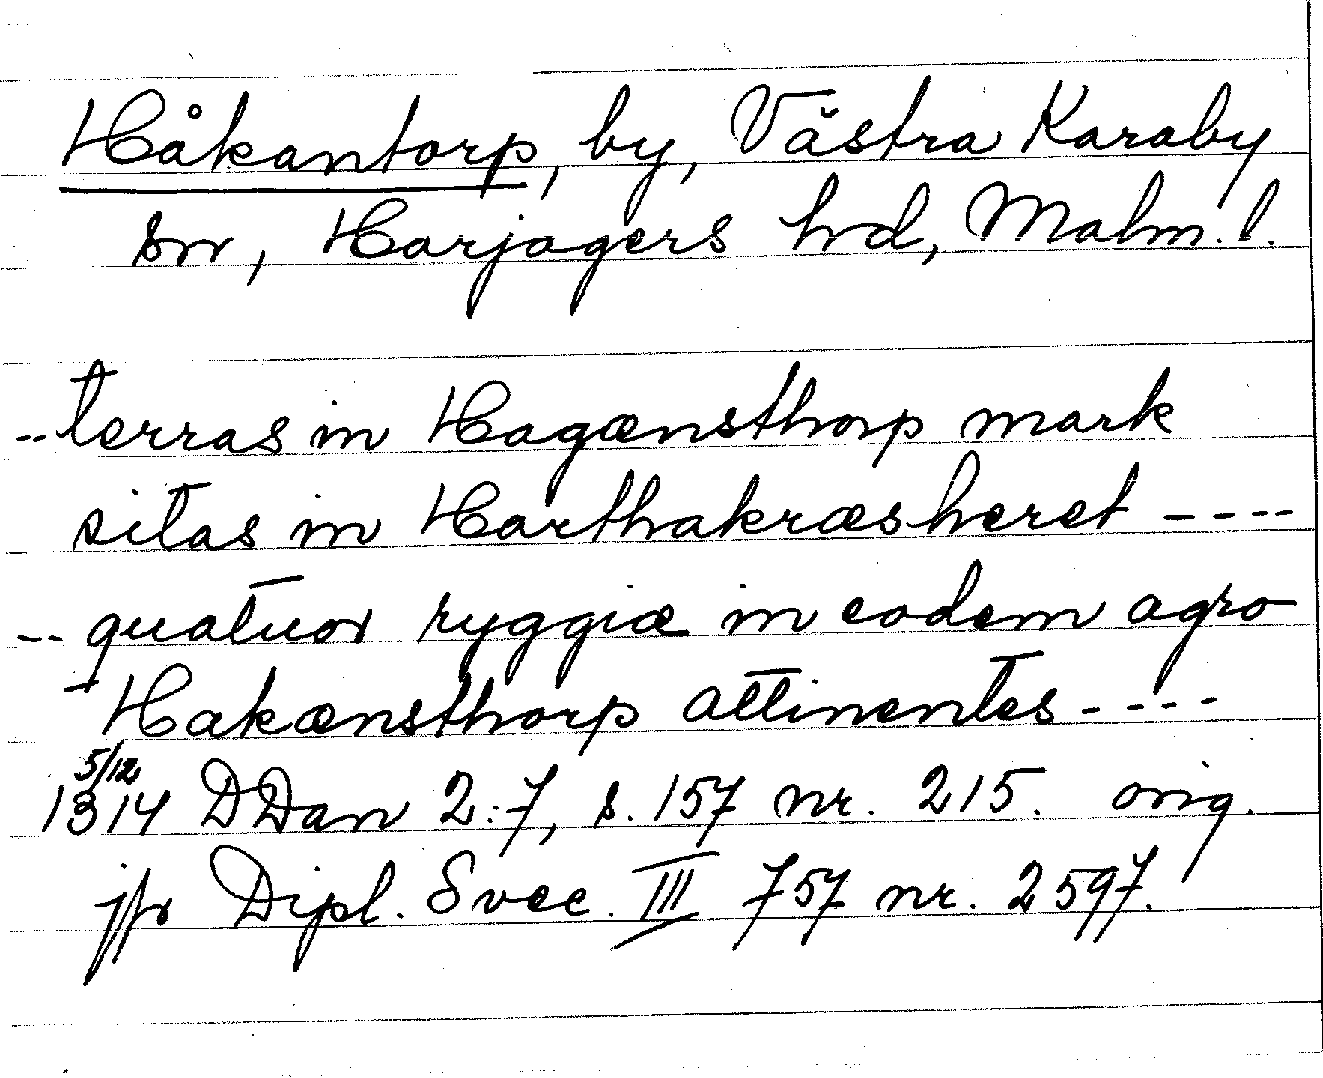 Håkantorp, by, Västra Karaby
sn, Harjagers hd, Malm. l.
-- terras in Hagænsthorp mark
sitas in Harthakræsheret ----
-- quatuor ryggiæ in eodem agro
- Hakænsthorp attinentes ----
5/12
1314 DDan 2:7, s. 157 nr. 215. orig.
jfr Dipl. Svec. III 757 nr. 2597.